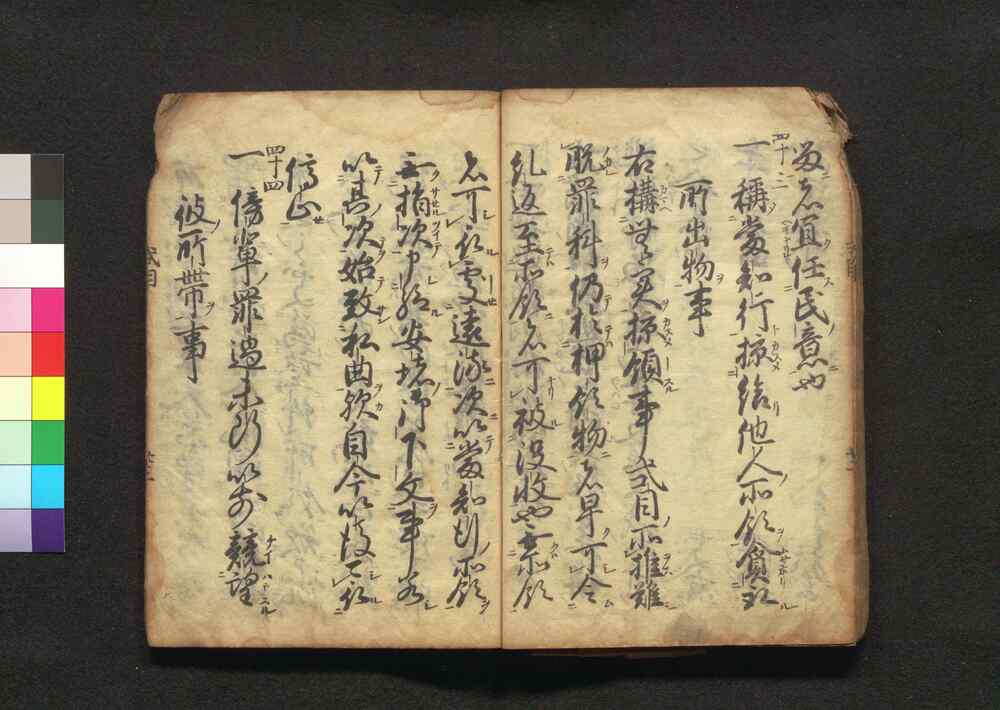 留者宜任民意也
四十三
一稱當知行掠給他人所領貪取
所出物事
右構無実掠領事式目所推難
脱罪科仍於押領物者早可令
糺返至所領者可被没收也無所領
者可被處遠流次以當知行所領
無指次申給安堵御下文事若
以其次始致私曲歟自今以後可被
停止
四十四
一傍輩罪過未断以前競望
彼所帯事
式目